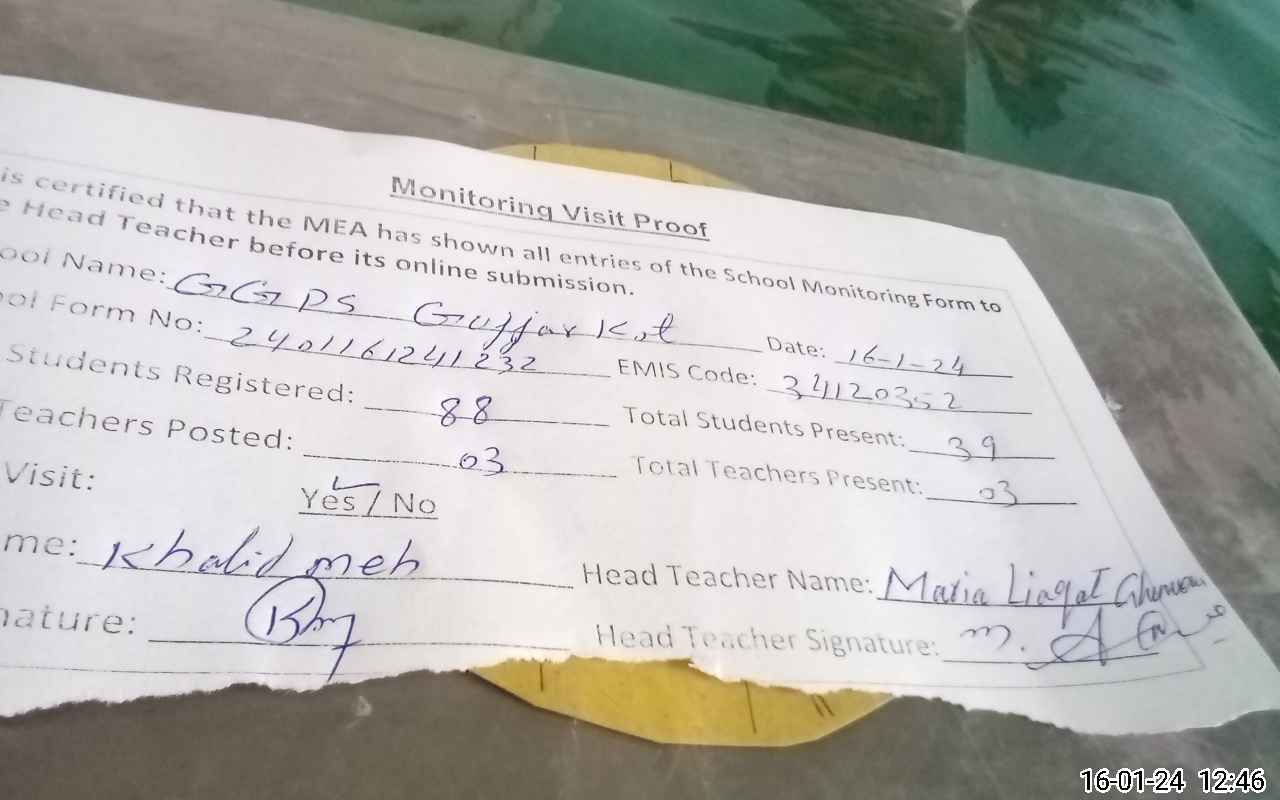 Monitoring Visit Proof
is certified that the MEA has shown all entries of the School Monitoring Form to
e Head Teacher before its online submission.
ool Name: GGPS Gujjar Kot Date: 16-1-24
ol Form No: 2401161241232 EMIS Code: 34120352
Students Registered: 88 Total Students Present: 39
Teachers Posted: 03 Total Teachers Present: 03
Visit: Yes / No
me: Khalid meh Head Teacher Name: Maria Liaqat
nature: Head Teacher Signature:
16-01-24 12:46